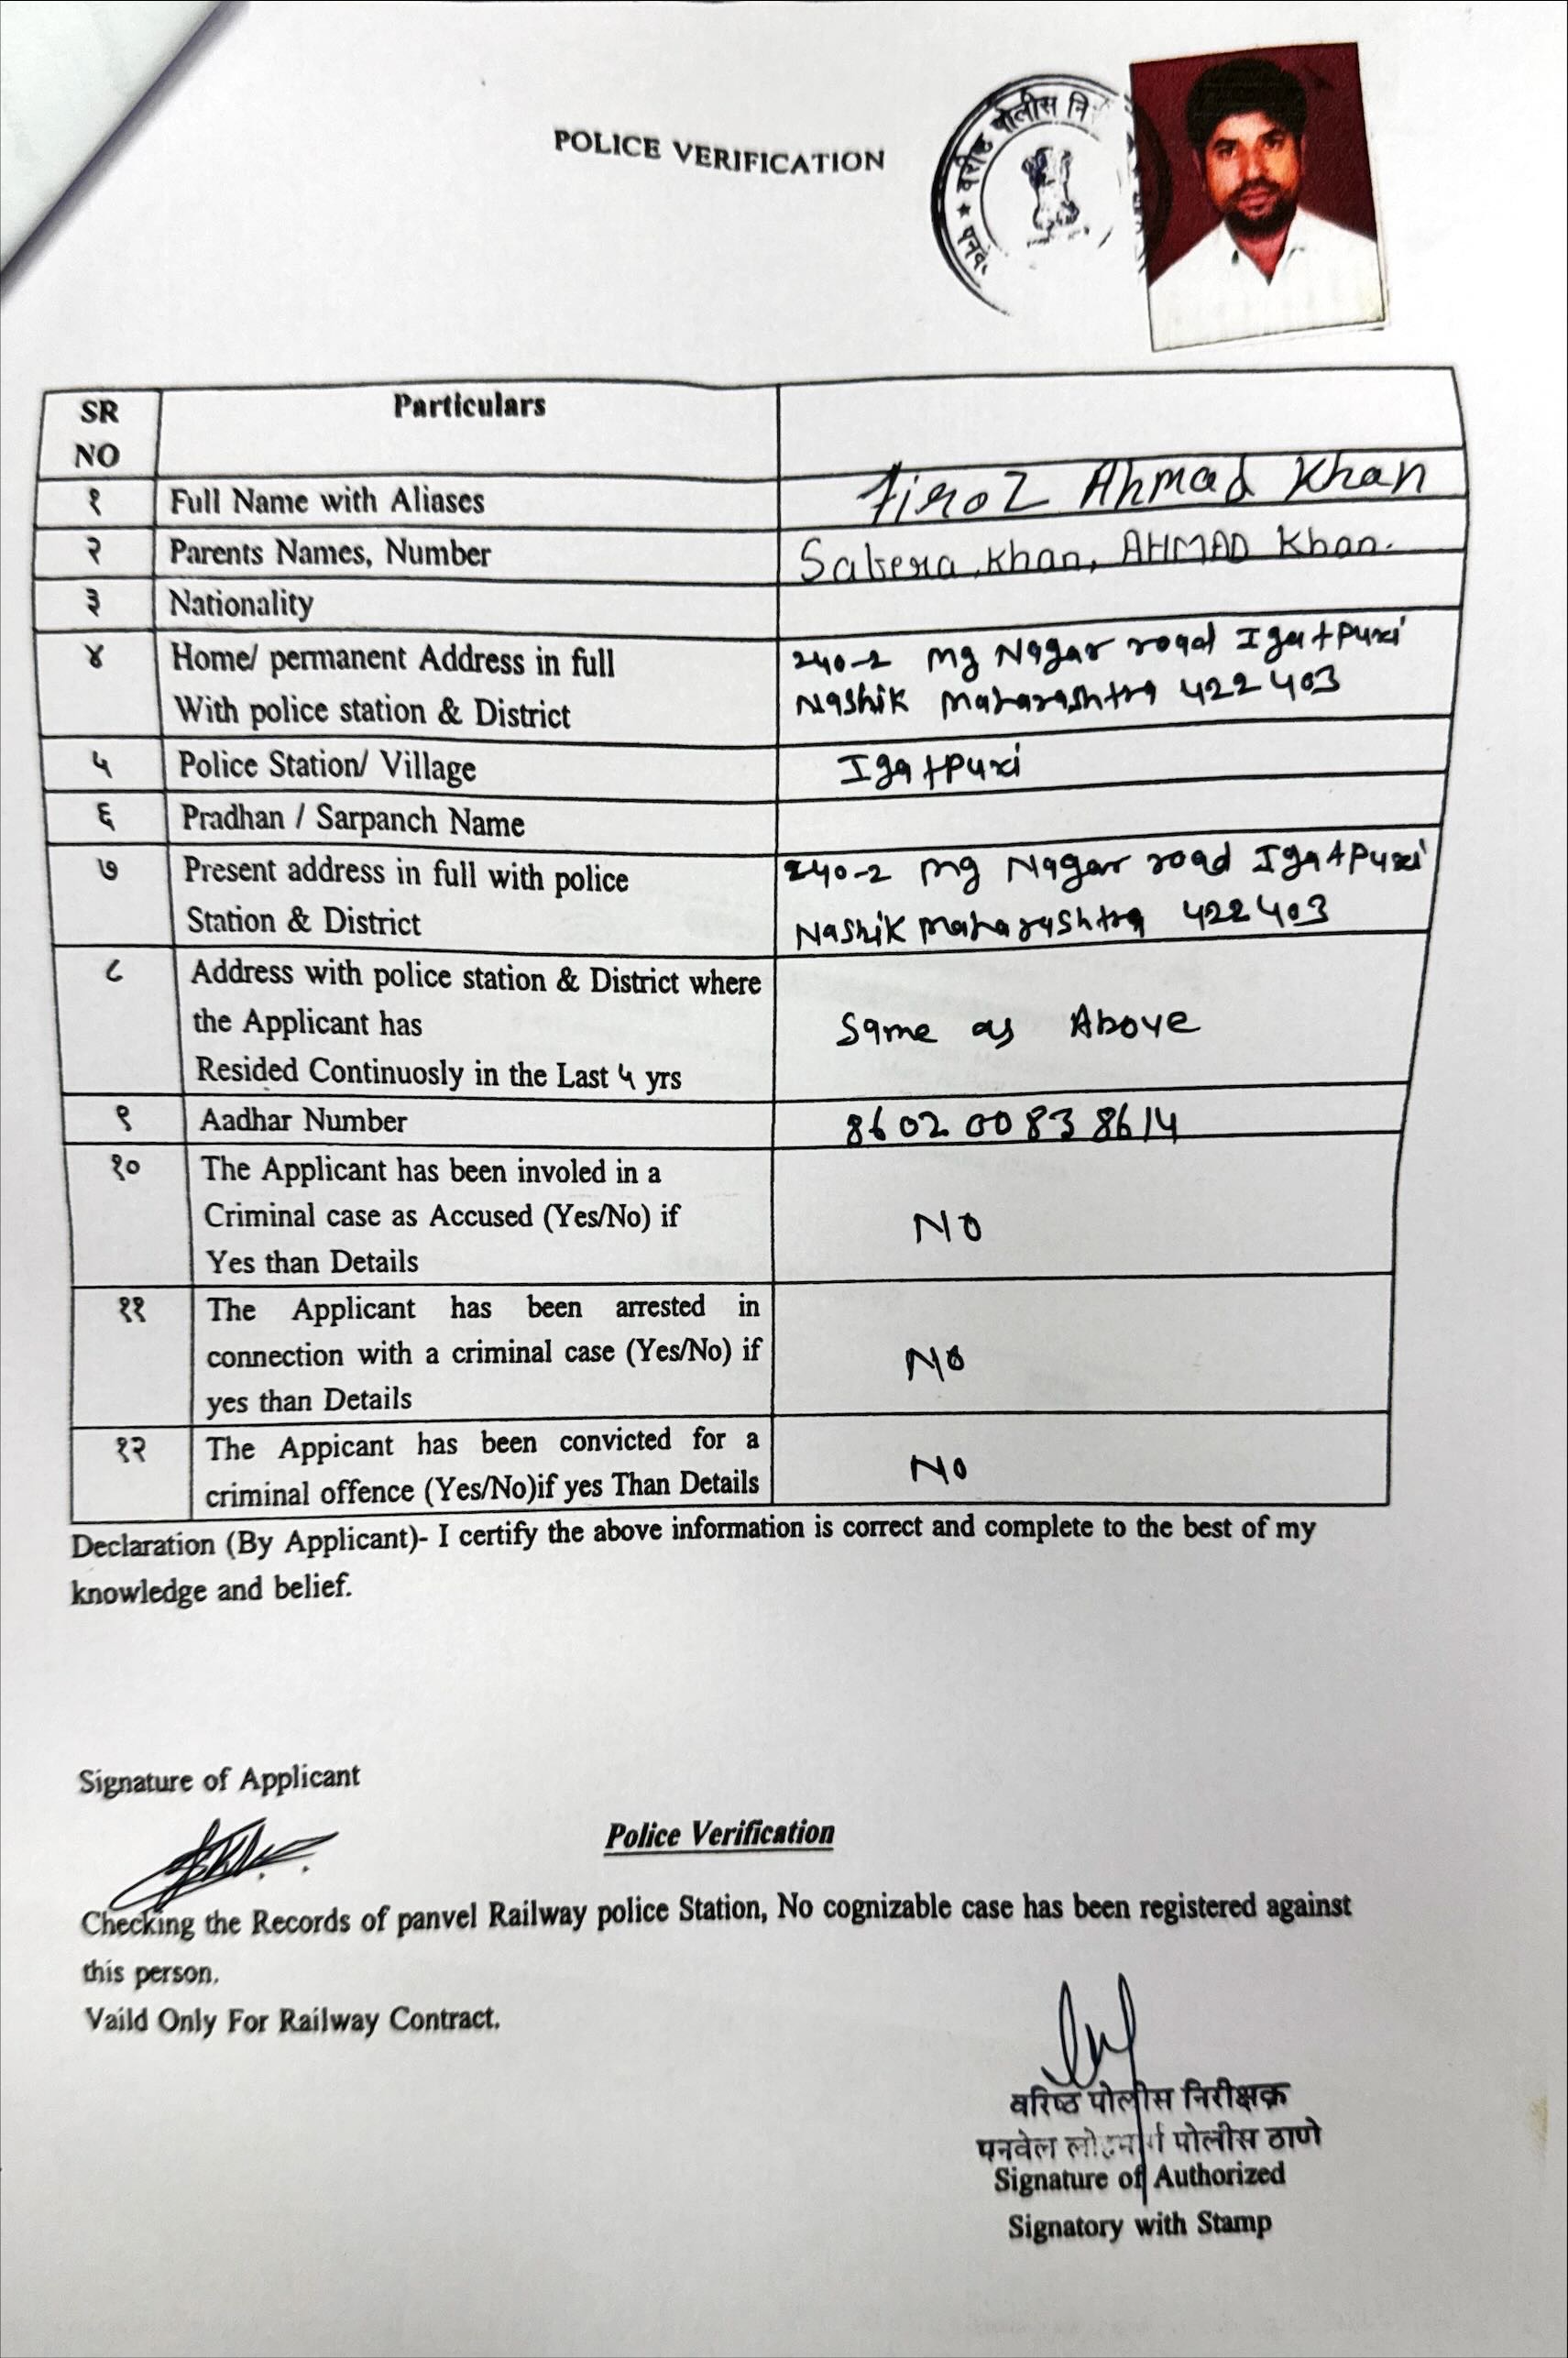 POLICE VERIFICATION
वरीष्ठ पोलीस
SR NO Particulars
१ Full Name with Aliases Firoz Ahmad Khan
२ Parents Names, Number Sabera Khan, AHMAD Khan.
३ Nationality
४ Home/ permanent Address in full 240-2 mg Nagar road Igatpuri
With police station & District Nashik maharashtra 422403
५ Police Station/ Village Igatpuri
६ Pradhan / Sarpanch Name
७ Present address in full with police 240-2 mg Nagar road Igatpuri
Station & District Nashik maharashtra 422403
८ Address with police station & District where
the Applicant has Same as Above
Resided Continuosly in the Last ५ yrs
९ Aadhar Number 8602 0083 8614
१० The Applicant has been involed in a
Criminal case as Accused (Yes/No) if NO
Yes than Details
११ The Applicant has been arrested in
connection with a criminal case (Yes/No) if NO
yes than Details
१२ The Appicant has been convicted for a
criminal offence (Yes/No)if yes Than Details NO
Declaration (By Applicant)- I certify the above information is correct and complete to the best of my
knowledge and belief.
Signature of Applicant
Police Verification
Checking the Records of panvel Railway police Station, No cognizable case has been registered against
this person.
Vaild Only For Railway Contract.
वरिष्ठ पोलीस निरीक्षक
पनवेल लोहमार्ग पोलीस ठाणे
Signature of Authorized
Signatory with Stamp